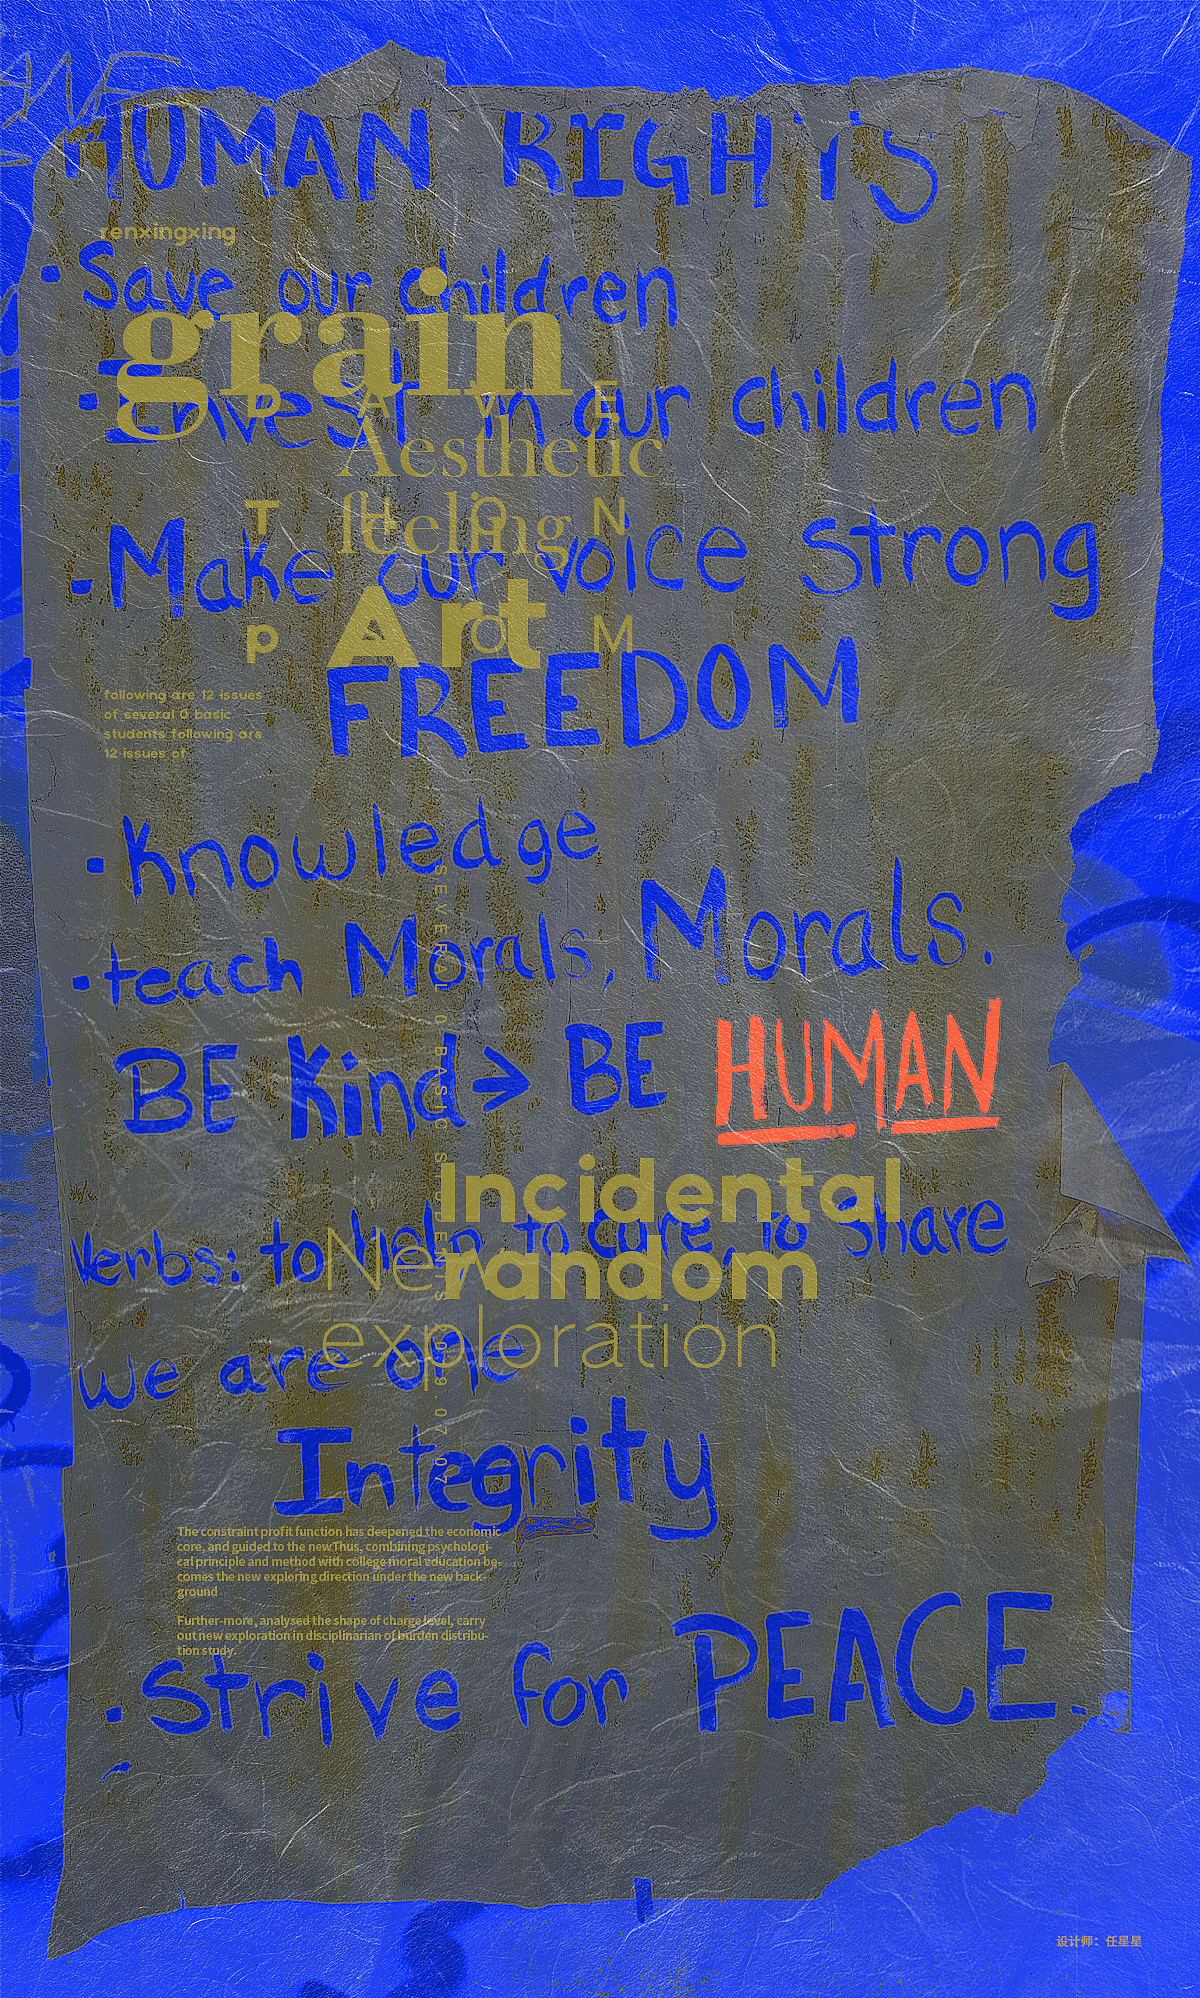 HUMAN RIGHTS
renxingxing
• Save our children
grain
• Invest in our children
D A V E
Aesthetic
T H O N
feeling
• Make our voice strong
Art
P A O M
FREEDOM
following are 12 issues
of several 0 basic
students following are
12 issues of
• Knowledge
• teach Morals, Morals.
BE Kind > BE HUMAN
SEVERAL 0 BASIC STUDENTS 2019 07 07
Incidental
Verbs: to help to care to share
New random
exploration
we are one
Integrity
The constraint profit function has deepened the economic
core, and guided to the newThus, combining psychologi-
cal principle and method with college moral education be-
comes the new exploring direction under the new back-
ground
Further-more, analysed the shape of charge level, carry
out new exploration in disciplinarian of burden distribu-
tion study.
• Strive for PEACE.
设计师：任星星